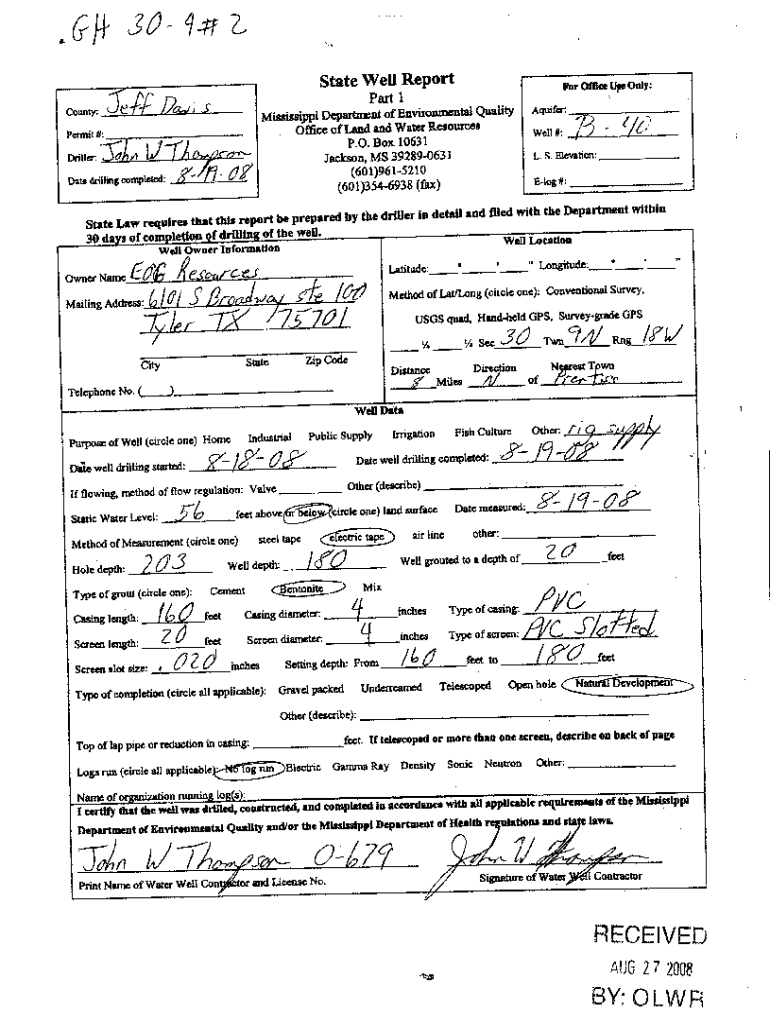 GH 30-9#2
State Well Report
Part 1
Mississippi Department of Environmental Quality
Office of Land and Water Resources
P.O. Box 10631
Jackson, MS 39289-0631
(601)961-5210
(601)354-6938 (fax)
County: Jeff Davis
Permit #:
Driller: John W Thompson
Date drilling completed: 8-19-08
For Office Use Only:
Aquifer:
Well #: B-40
L. S. Elevation:
E-log #:
State Law requires that this report be prepared by the driller in detail and filed with the Department within
30 days of completion of drilling of the well.
Well Owner Information
Owner Name EOG Resources
Mailing Address: 6101 S Broadway ste 100
Tyler TX 75701
City State Zip Code
Telephone No. ( )
Well Location
Latitude: ° ' " Longitude: ° ' "
Method of Lat/Long (circle one): Conventional Survey,
USGS quad, Hand-held GPS, Survey-grade GPS
¼ ¼ Sec 30 Twn 9N Rng 18W
Distance Direction Nearest Town
8 Miles N of
Well Data
Purpose of Well (circle one) Home Industrial Public Supply Irrigation Fish Culture Other: rig supply
Date well drilling started: 8-18-08 Date well drilling completed: 8-19-08
If flowing, method of flow regulation: Valve Other (describe)
Static Water Level: 56 feet above or below (circle one) land surface Date measured: 8-19-08
Method of Measurement (circle one) steel tape electric tape air line other:
Hole depth: 203 Well depth: 180 Well grouted to a depth of 20 feet
Type of grout (circle one): Cement Bentonite Mix
Casing length: 160 feet Casing diameter: 4 inches Type of casing: PVC
Screen length: 20 feet Screen diameter: 4 inches Type of screen: PVC Slotted
Screen slot size: .020 inches Setting depth: From 160 feet to 180 feet
Type of completion (circle all applicable): Gravel packed Underreamed Telescoped Open hole Natural Development
Other (describe):
Top of lap pipe or reduction in casing: feet. If telescoped or more than one screen, describe on back of page
Logs run (circle all applicable): No log run Electric Gamma Ray Density Sonic Neutron Other:
Name of organization running log(s):
I certify that the well was drilled, constructed, and completed in accordance with all applicable requirements of the Mississippi
Department of Environmental Quality and/or the Mississippi Department of Health regulations and state laws.
John W Thompson 0-679 John W Thompson
Print Name of Water Well Contractor and License No. Signature of Water Well Contractor
RECEIVED
AUG 27 2008
BY: OLWR